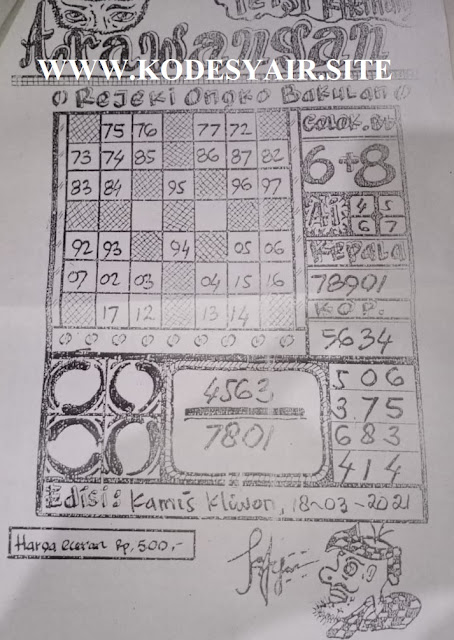 Arawangan
WWW.KODESYAIR.SITE
Rejeki Ongko Bakulan
75 76 77 72
73 74 85 86 87 82
83 84 95 96 97
92 93 94 05 06
07 02 03 04 15 16
17 12 13 14
COLOK.BB
6+8
AIS 4 5
6 7
KEPALA
78901
KOP.
5634
4563
7801
506
375
683
414
Edisi: Kamis Kliwon, 18-03-2021
Harga eceran Rp, 500,-